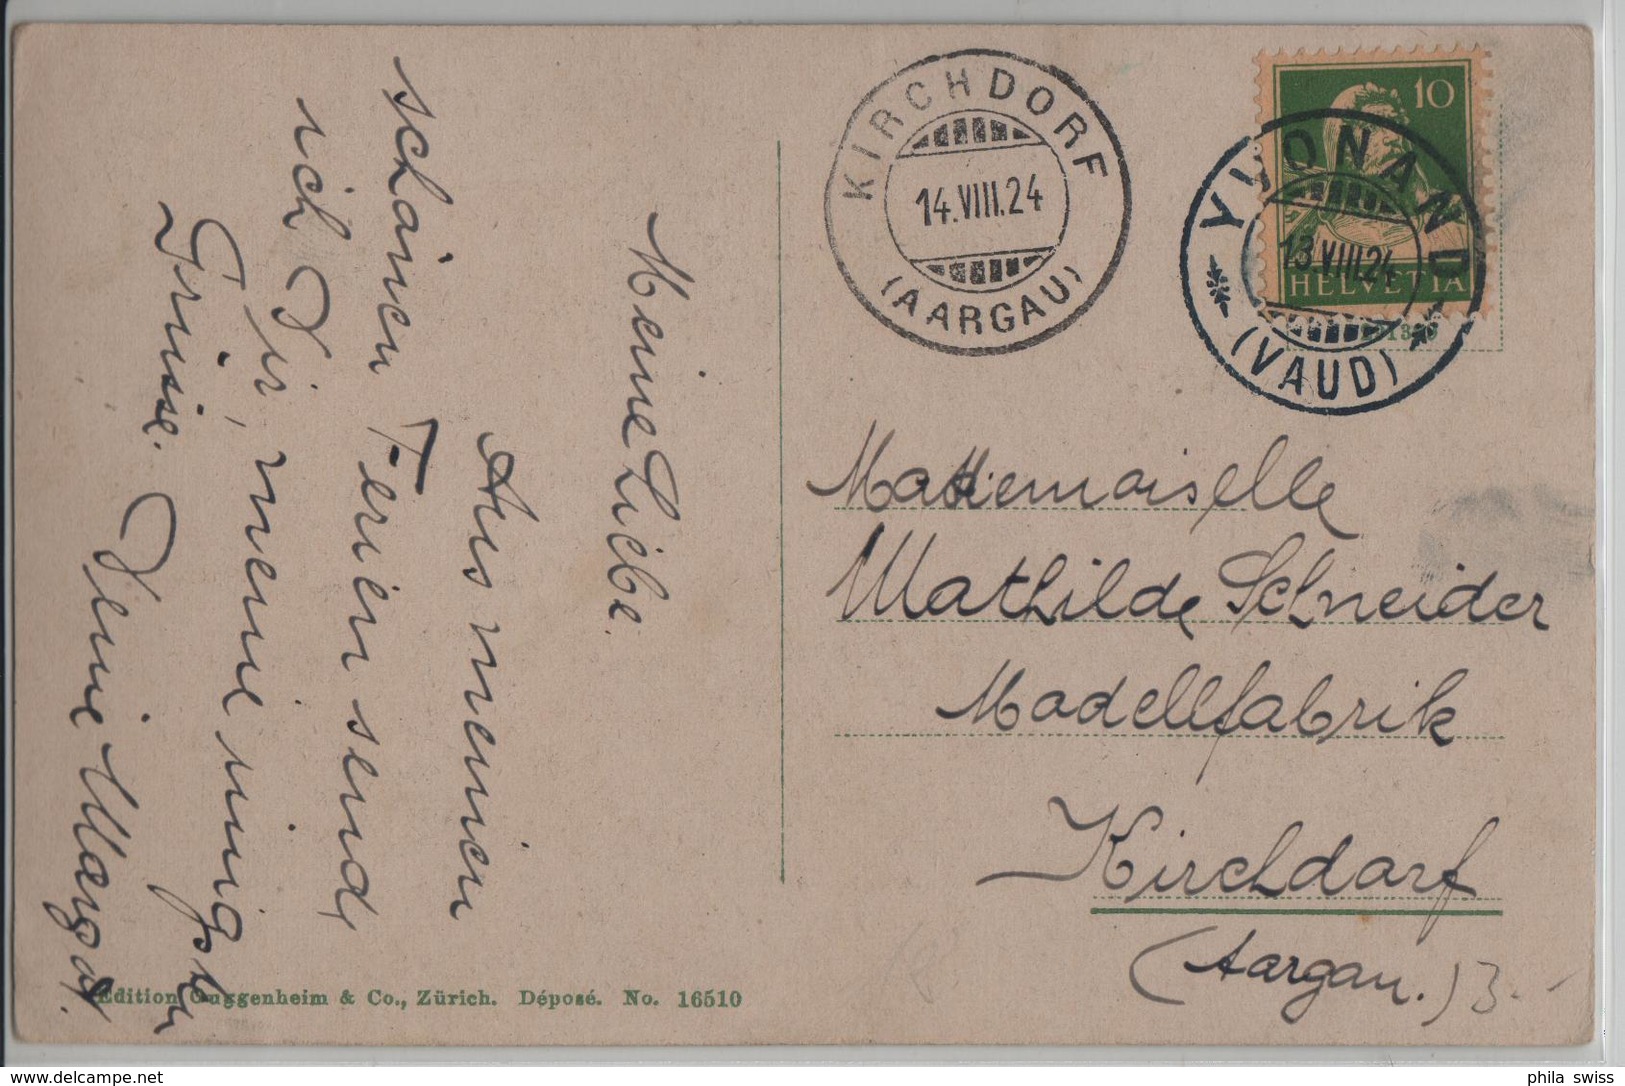 Meine Liebe.
Aus meinen
schönen Ferien send
ich Dir, meine innigsten
Grüsse.
Deine Margot.
Edition Guggenheim & Co., Zürich. Déposé. No. 16510
KIRCHDORF
14.VIII.24
(AARGAU)
10
HELVETIA
YVONAND
13.VIII.24
(VAUD)
Mademoiselle
Mathilde Schneider
Modellfabrik
Kirchdorf
(Aargau.) 3.-
phila swiss